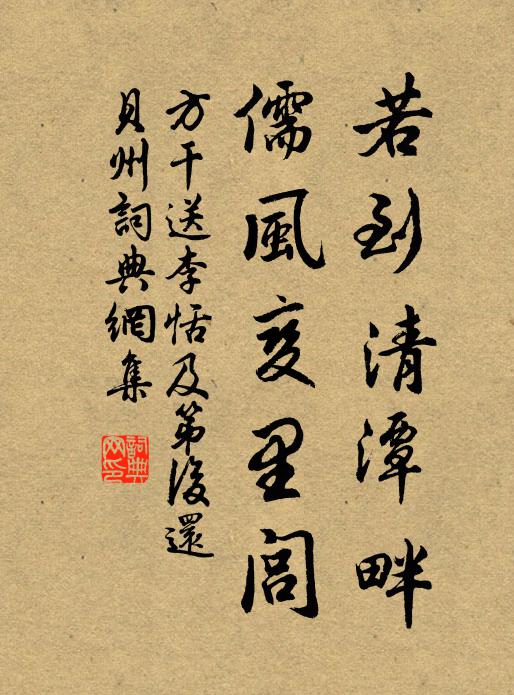 若到清潭畔
儒風变里閭
方干送李恬及第後還
貝州詞典網集
詞典網印